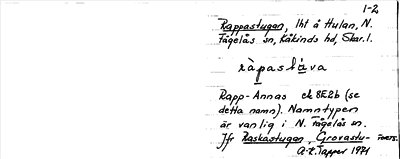 1-2
Rappastugan, lht å Hulan, N.
Fågelås sn, Kåkinds hd, Skar.l.
ràpastáva
Rapp-Annas ek 8E2b (se
detta namn). Namntypen
är vanlig i N. Fågelås sn.
Jfr Raskastugan, Grovastu-
forts.
A-K. Tapper 1971